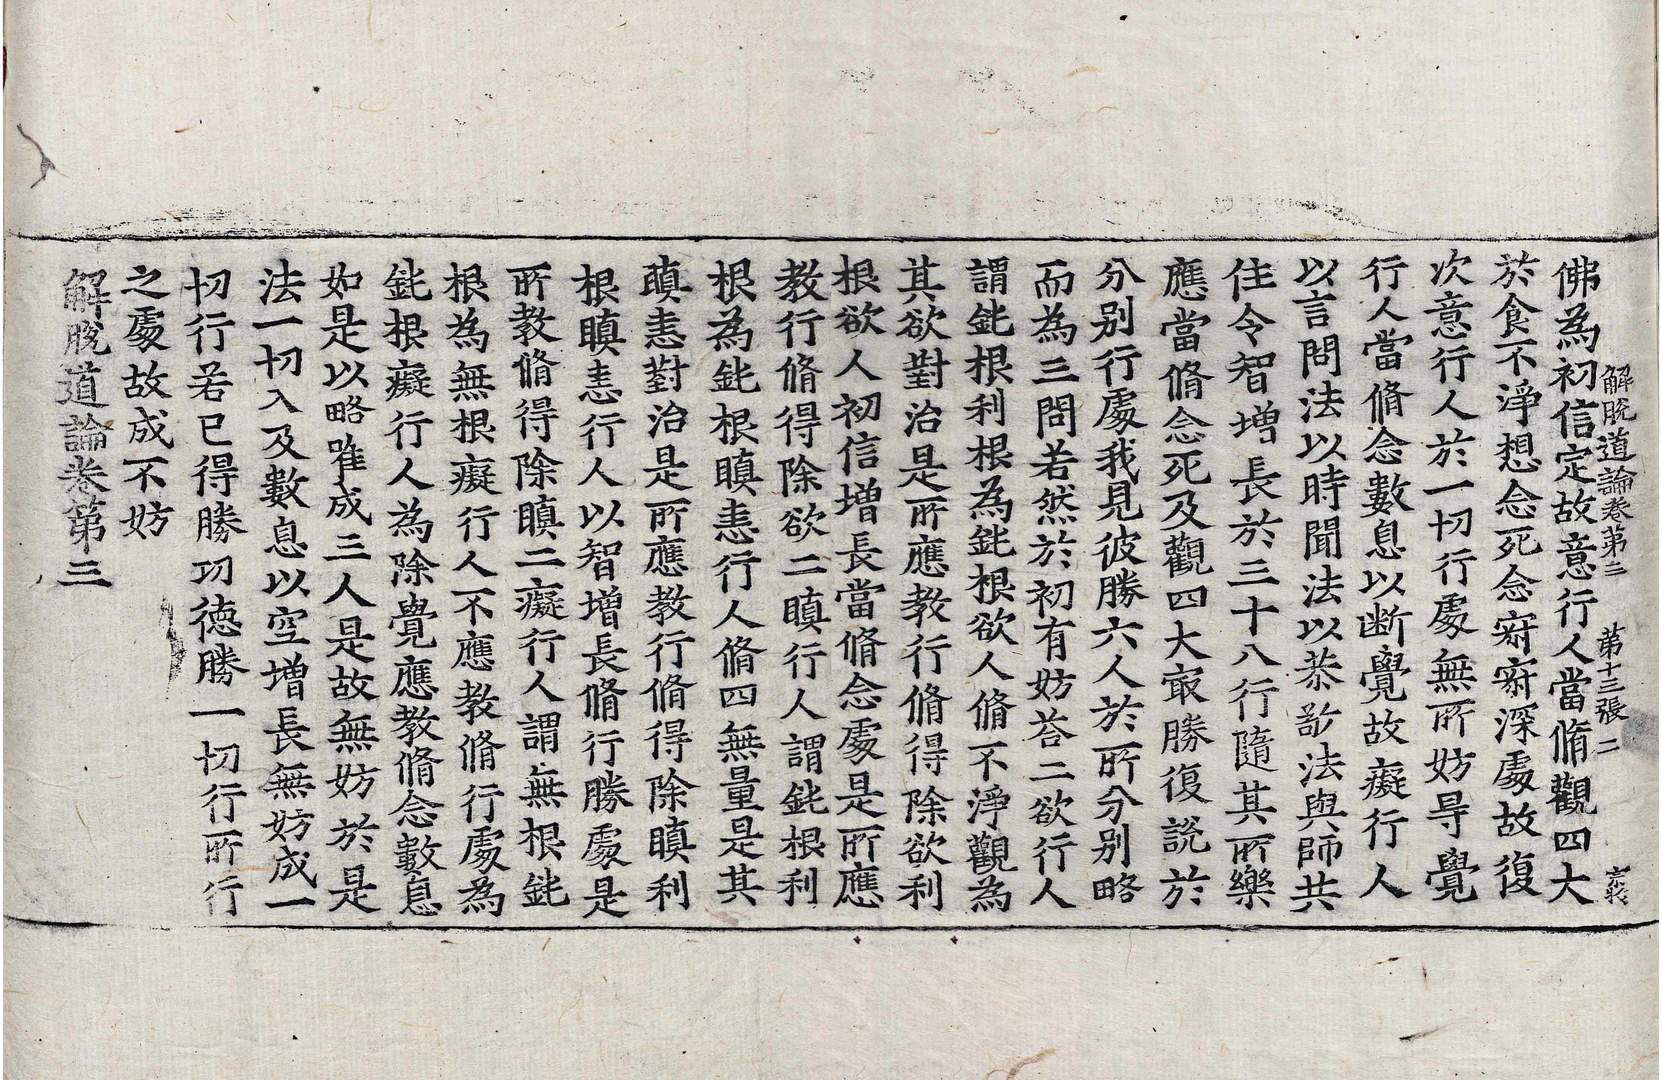 解脫道論卷第三 第十三張 二
佛為初信定故意行人當脩觀四大
於食不淨想念死念寂寂深處故復
次意行人於一切行處無所妨㝵覺
行人當脩念數息以斷覺故癡行人
以言問法以時聞法以恭敬法與師共
住令智增長於三十八行隨其所樂
應當脩念死及觀四大㝡勝復說於
分别行處我見彼勝六人於所分别略
而為三問若然於初有妨荅二欲行人
謂鈍根利根為鈍根欲人脩不淨觀為
其欲對治是所應教行脩得除欲利
根欲人初信增長當脩念處是所應
教行脩得除欲二瞋行人謂鈍根利
根為鈍根瞋恚行人脩四無量是其
瞋恚對治是所應教行脩得除瞋利
根瞋恚行人以智增長脩行勝處是
所教脩得除瞋二癡行人謂無根鈍
根為無根癡行人不應教脩行處為
鈍根癡行人為除覺應教脩念數息
如是以略唯成三人是故無妨於是
法一切入及數息以空增長無妨成一
切行若已得勝功德勝一切行所行
之處故成不妨
解脫道論卷第三